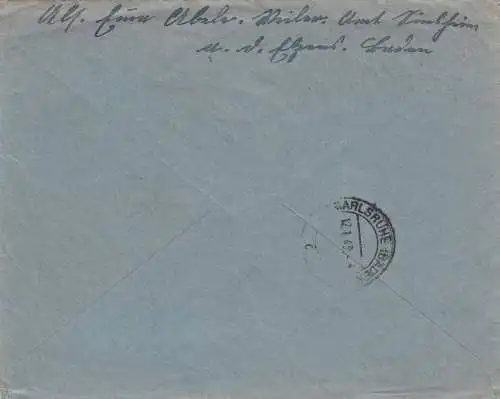 Abs. Emma Abele. Weiler. Amt Sinsheim
a. d. Elsenz. Baden
KARLSRUHE (BADEN)